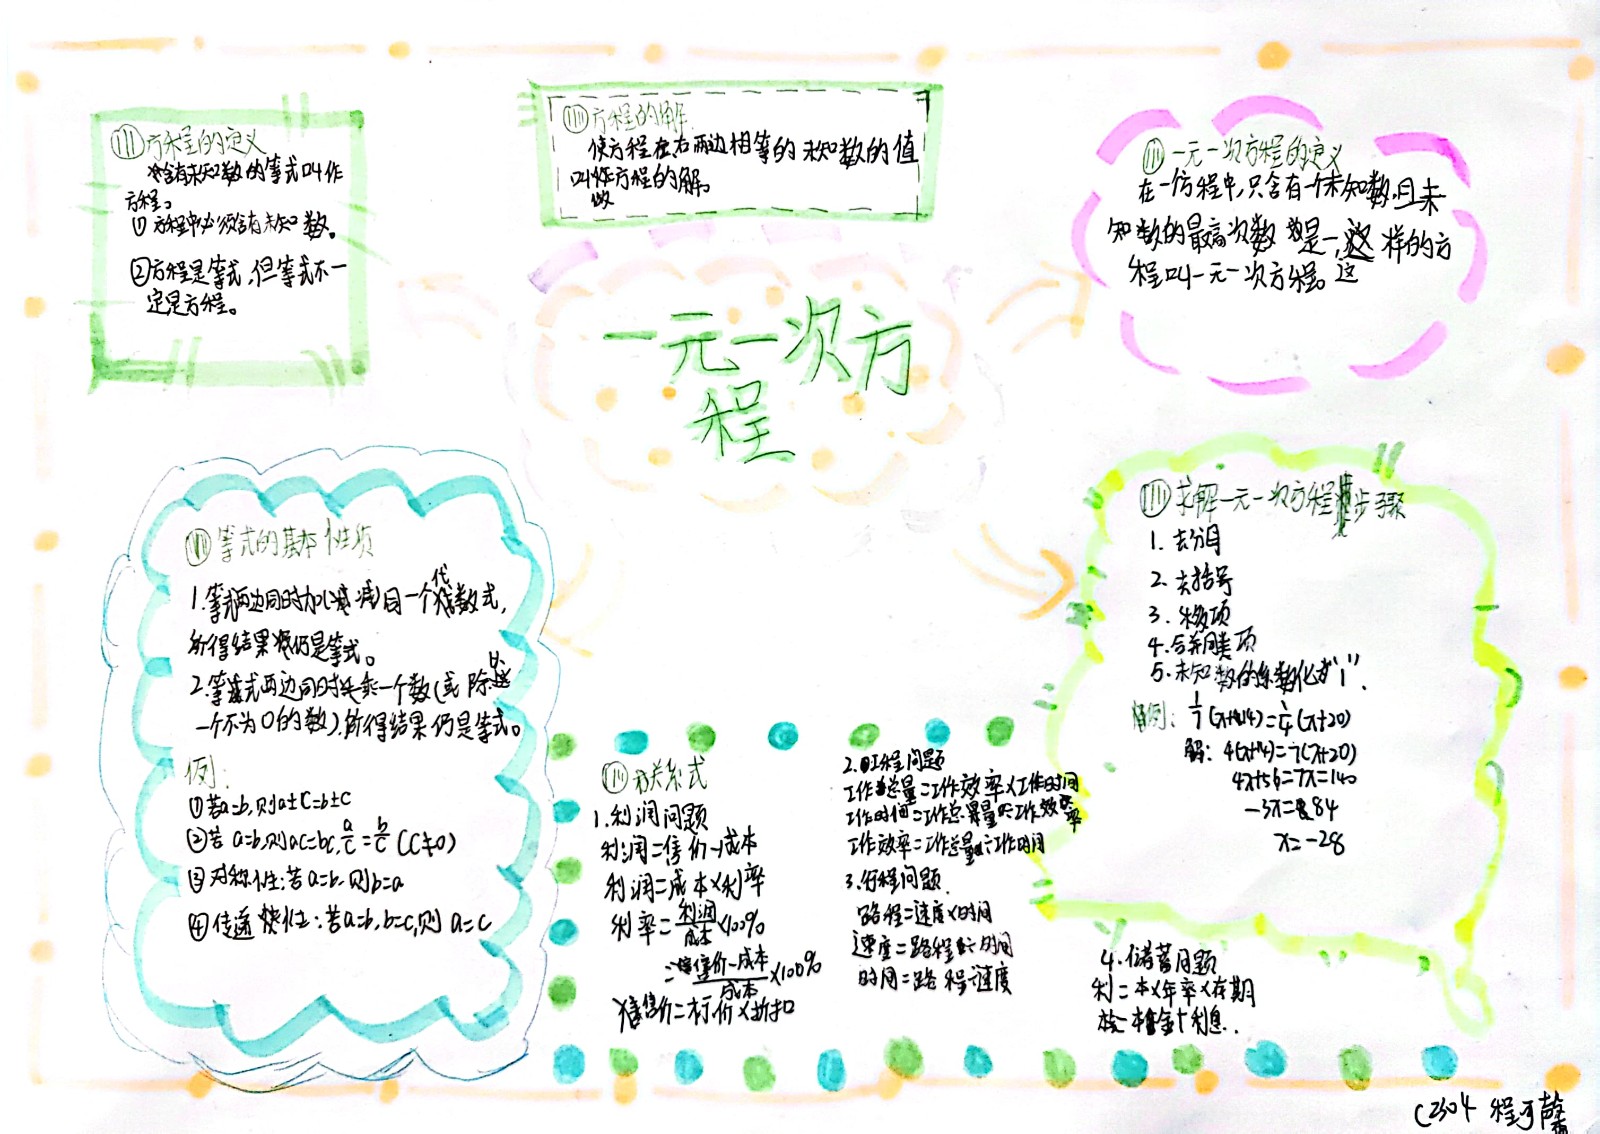 方程的定义
含有未知数的等式叫作
方程。
① 方程中必须含有未知数。
②方程是等式,但等式不一
定是方程。
方程的解
使方程左右两边相等的未知数的值
叫作方程的解。
做
一元一次方程的定义
在一个方程中,只含有一个未知数,且未
知数的最高次数是一,这样的方
程叫一元一次方程。这
一元一次方
程
等式的基本性质
1.等式两边同时加(减)同一个代数式,
所得结果仍是等式。
2.等式两边同时乘一个数(或除以
一个不为0的数),所得结果仍是等式。
例:
①若a=b,则a±c=b±c
②若 a=b,则ac=bc, a/c = b/c (c≠0)
③对称性:若a=b,则b=a
④传递性:若a=b,b=c,则 a=c
求解一元一次方程步骤
1. 去分母
2. 去括号
3. 移项
4.合并同类项
5.未知数的系数化为“1”.
例: 1/7(x+14)=1/4(x+20)
解: 4(x+14)=7(x+20)
4x+56=7x=140
-3x=84
x=-28
关系式
1.利润问题
利润=售价-成本
利润=成本×利率
利率=利润/成本×100%
=售价-成本/成本×100%
售价=标价×折扣
2.工程问题
工作总量=工作效率×工作时间
工作时间=工作总量÷工作效率
工作效率=工作总量÷工作时间
3.行程问题.
路程=速度×时间
速度=路程÷时间
时间=路程÷速度
4.储蓄问题
利=本×年率×存期
本金+利息.
C2304 程可馨